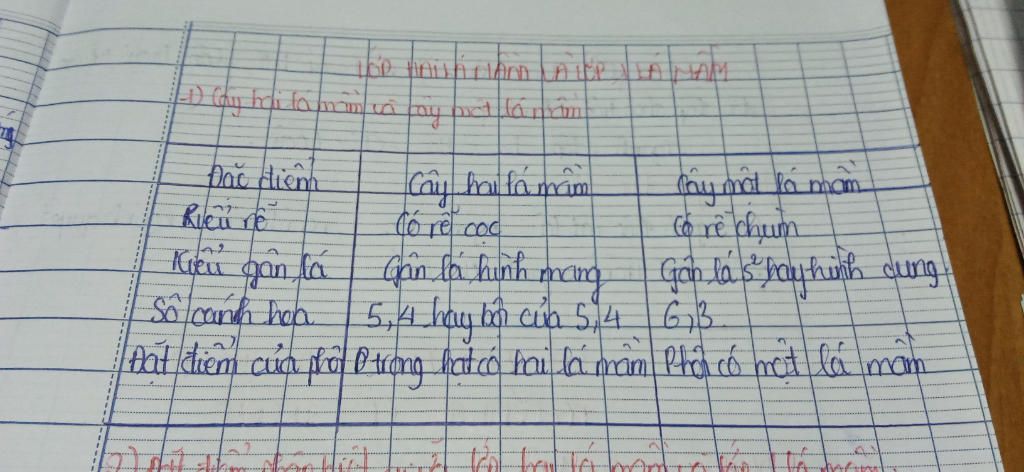 LỚP HAI LÁ MẦM VÀ LỚP 1 LÁ MẦM
1) Cây hai lá mầm và cây một lá mầm
Đặc điểm Cây hai lá mầm Cây một lá mầm
Kiểu rễ Có rễ cọc Có rễ chùm
Kiểu gân lá Gân lá hình mạng Gân lá s² hay hình cung
Số cánh hoa 5,4 hay bội của 5,4 6,3
Đặt điểm của phôi P trong hạt có hai lá mầm Phôi có một lá mầm
2) hai lá mầm và lớp 1 lá mầm